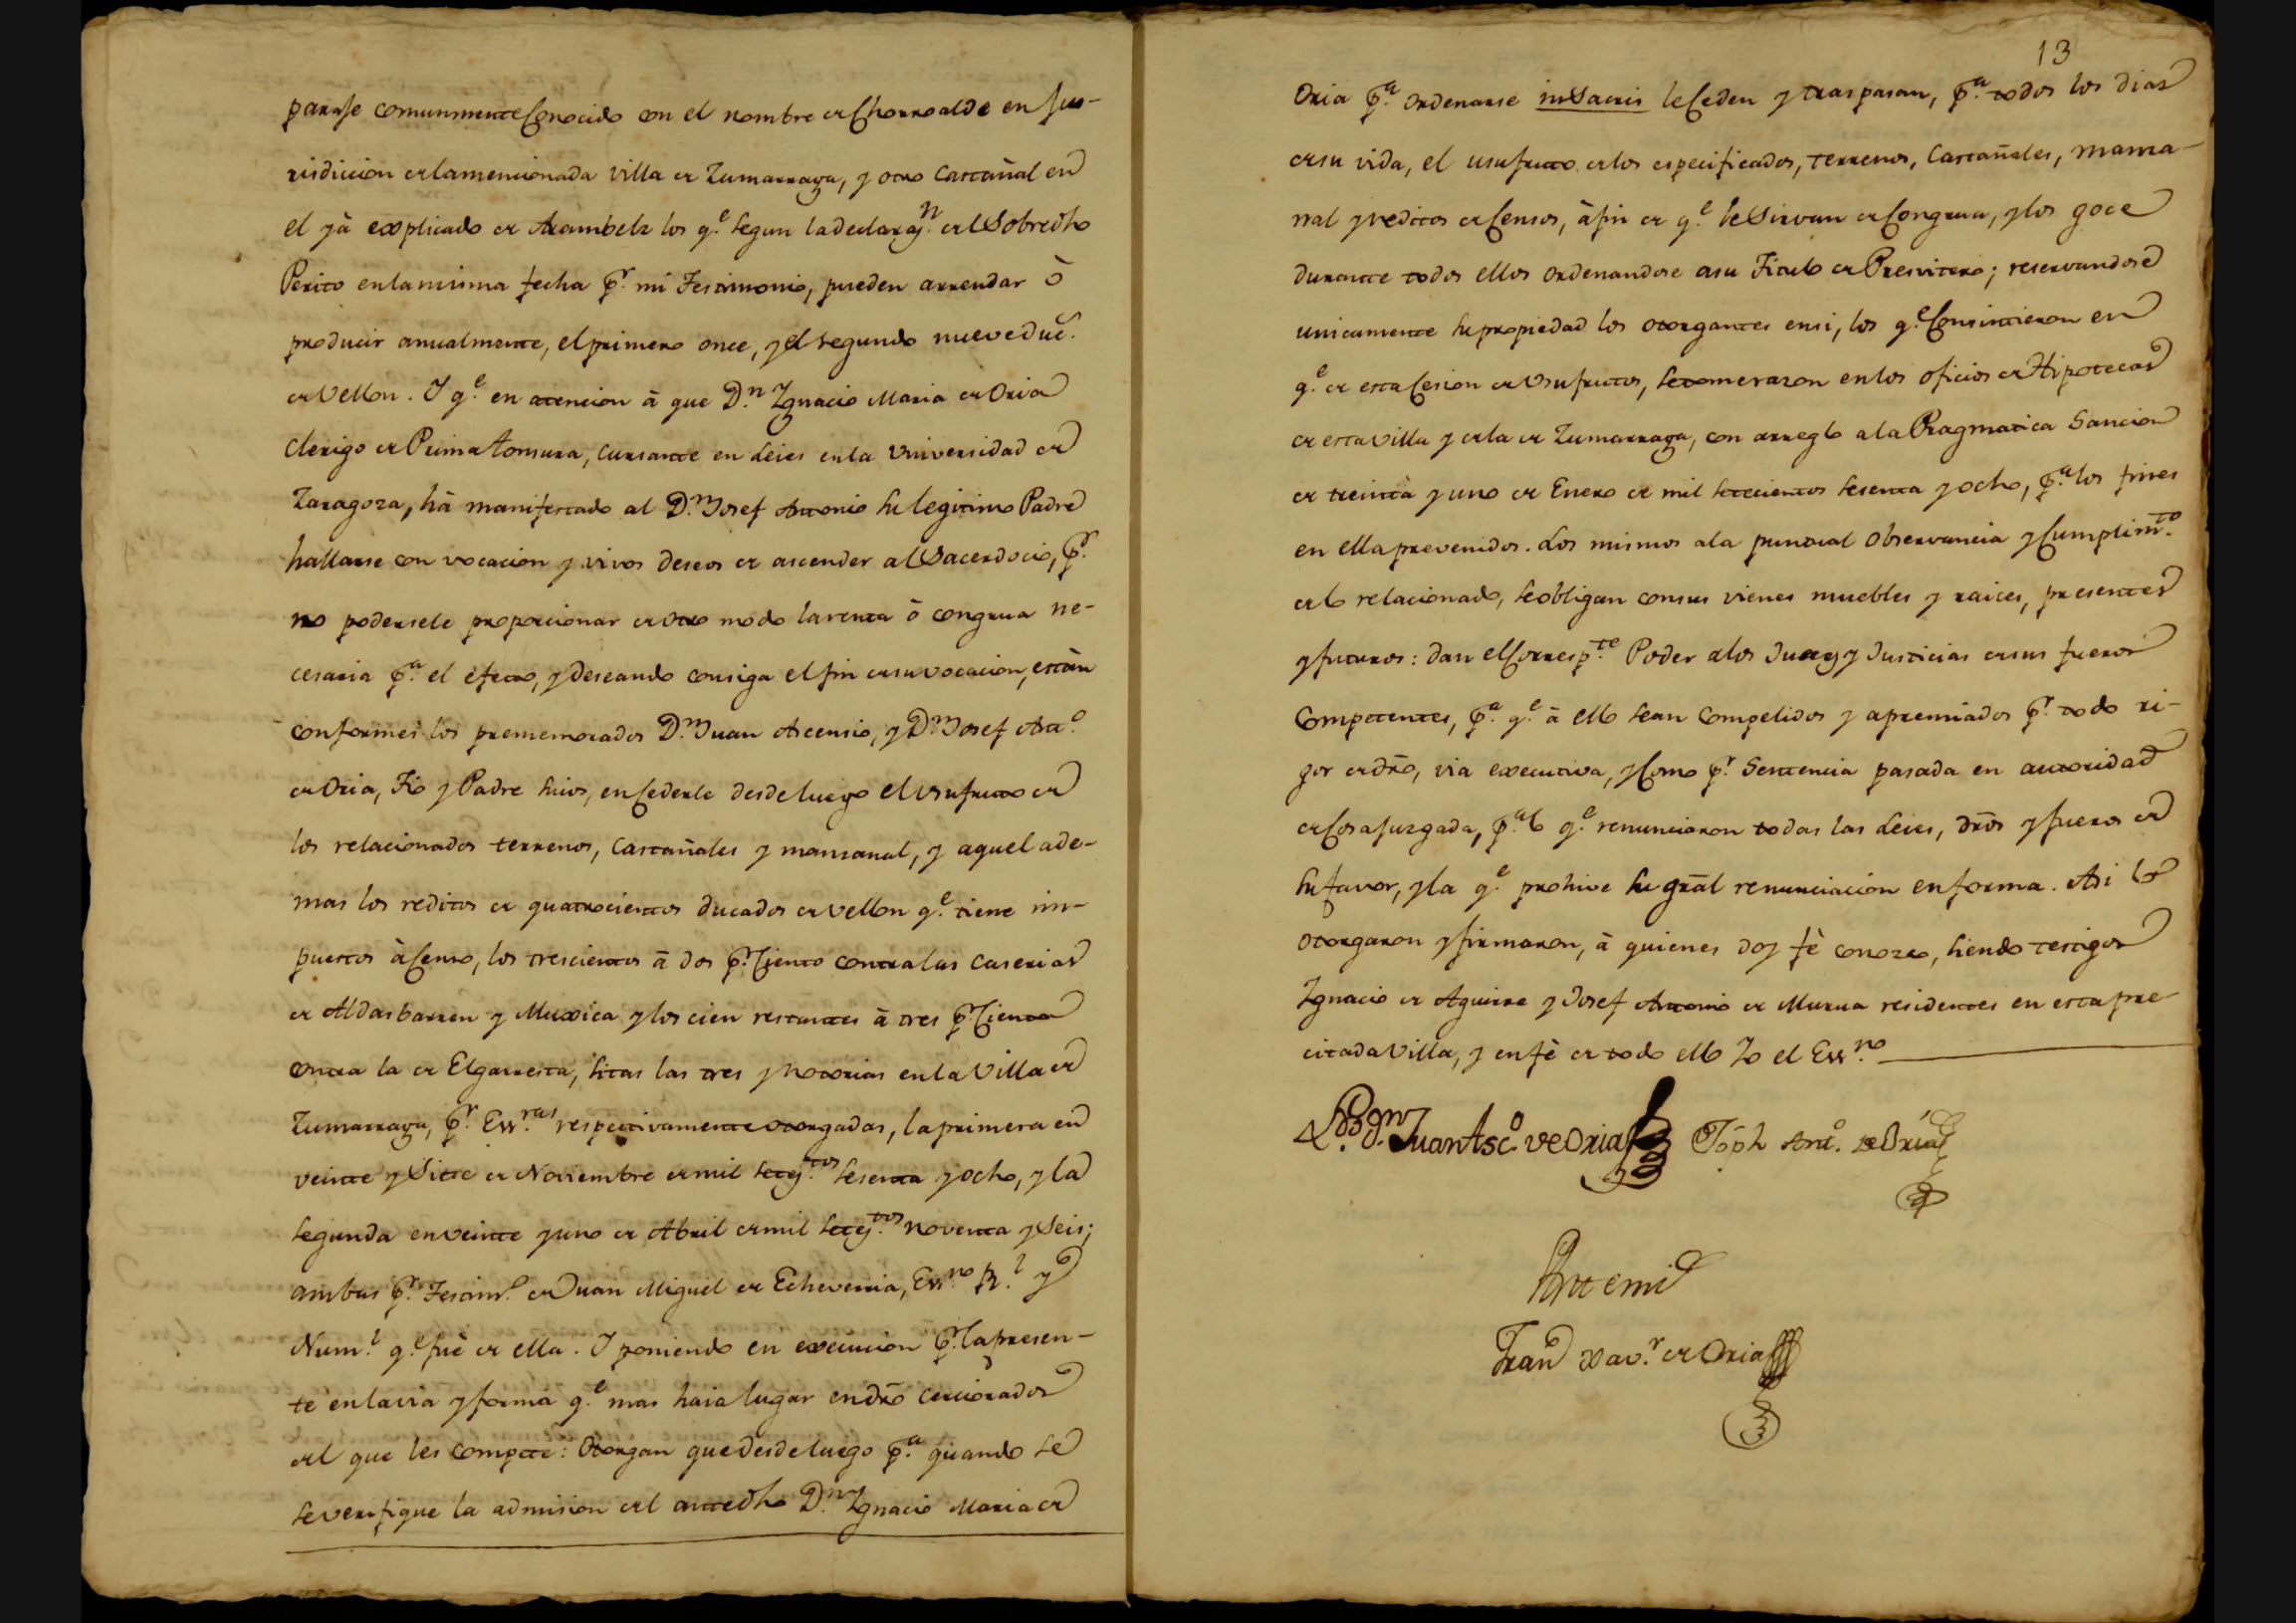 paraje comunmente Conocido con el nombre de Chorroalde en Ju-
risdiccion de la mencionada villa de Zumarraga, y otro Castañal en
el yà explicado de Arambelz los q.e segun la declaraz.n del Sobredho
Perito en la misma fecha p.r mi Testimonio, pueden arrendar ò
producir anualmente, el primero once, y el segundo nueve duc.
de Vellon. I q.e en atencion à que D.n Ygnacio Maria de Oria
Clerigo de Prima tonsura, cursante en Leies en la Universidad de
Zaragoza, hà manifestado al D.n Josef Antonio su legitimo Padre
hallarse con vocacion y vivos deseos de ascender al Sacerdocio, p.r
no podersele proporcionar de otro modo la renta ò congrua ne-
cesaria p.a el efecto, y deseando consiga el fin de su vocacion, estàn
conformes los prememorados D.n Juan Ascensio, y D.n Josef Ant.o
de Oria, Tio y Padre suios, en Cederle desde luego el Usufructo de
los relacionados terrenos, Castañales y manzanal, y aquel ade-
mas los reditos de quatrocientos ducados de vellon q.e tiene im-
puestos à Censo, los trescientos à dos p.r Ciento contra las caserias
de Aldasbarren y Muxica y los cien restantes à tres p.r Ciento
contra la de Elgarresta, sitas las tres y Notorias en la Villa de
Zumarraga, p.r Ess.ras respectivamente otorgadas, la primera en
veinte y Siete de Noviembre de mil setez.tos sesenta y ocho, y la
segunda en veinte y uno de Abril de mil setez.tos noventa y Seis;
ambas p.r Testim.o de Juan Miguel de Echeverria, Ess.no R.l y
Num.l q.e fuè de ella. I poniendo en execucion p.r la presen-
te en la via y forma q.e mas haia lugar en dro cerciorados
del que les compete: Otorgan que desde luego p.a quando se
se verifique la admision del antedho D.n Ygnacio Maria de
13
Oria p.a ordenarse in Sacris le Ceden y traspasan, p.a todos los dias
de su vida, el usufructo de los especificados, terrenos, Castañales, manza-
nal y reditos de Censos, à fin de q.e le Sirvan de Congrua, y los goce
durante todos ellos ordenandose a su Titulo de Presvitero; reservandose
unicamente su propiedad los otorgantes en si, los q.e Consintieron en
q.e de esta Cesion de Usufructos, se tome razon en los oficios de Hipotecas
de esta Villa y de la de Zumarraga, con arreglo a la Pragmatica Sancion
de treinta y uno de Enero de mil setecientos sesenta y ocho, p.a los fines
en ella prevenidos. Los mismos a la puntual observancia y Cumplim.to
de lo relacionado, se obligan con sus vienes muebles y raices, presentes
y futuros: dan el Corresp.te Poder a los Juezes y Justicias de sus fueros
Competentes, p.a q.e à ello sean compelidos y apremiados p.r todo ri-
gor de dro, via executiva, y Como p.r Sentencia pasada en autoridad
de Cosa Juzgada, p.a lo q.e renunciaron todas las Leies, dros y fueros de
su favor, y la q.e prohive su gral renunciacion en forma. Asi lo
otorgaron y firmaron, à quienes doy fè conozco, siendo testigos
Ygnacio de Aguirre y Josef Antonio de Murua residentes en esta pre-
citada Villa, y en fè de todo ello Yo el Ess.no
D.n Juan Asc.o de Oria Joph Ant.o de Oria
Ante mi
Fran.co Xav.r de Oria